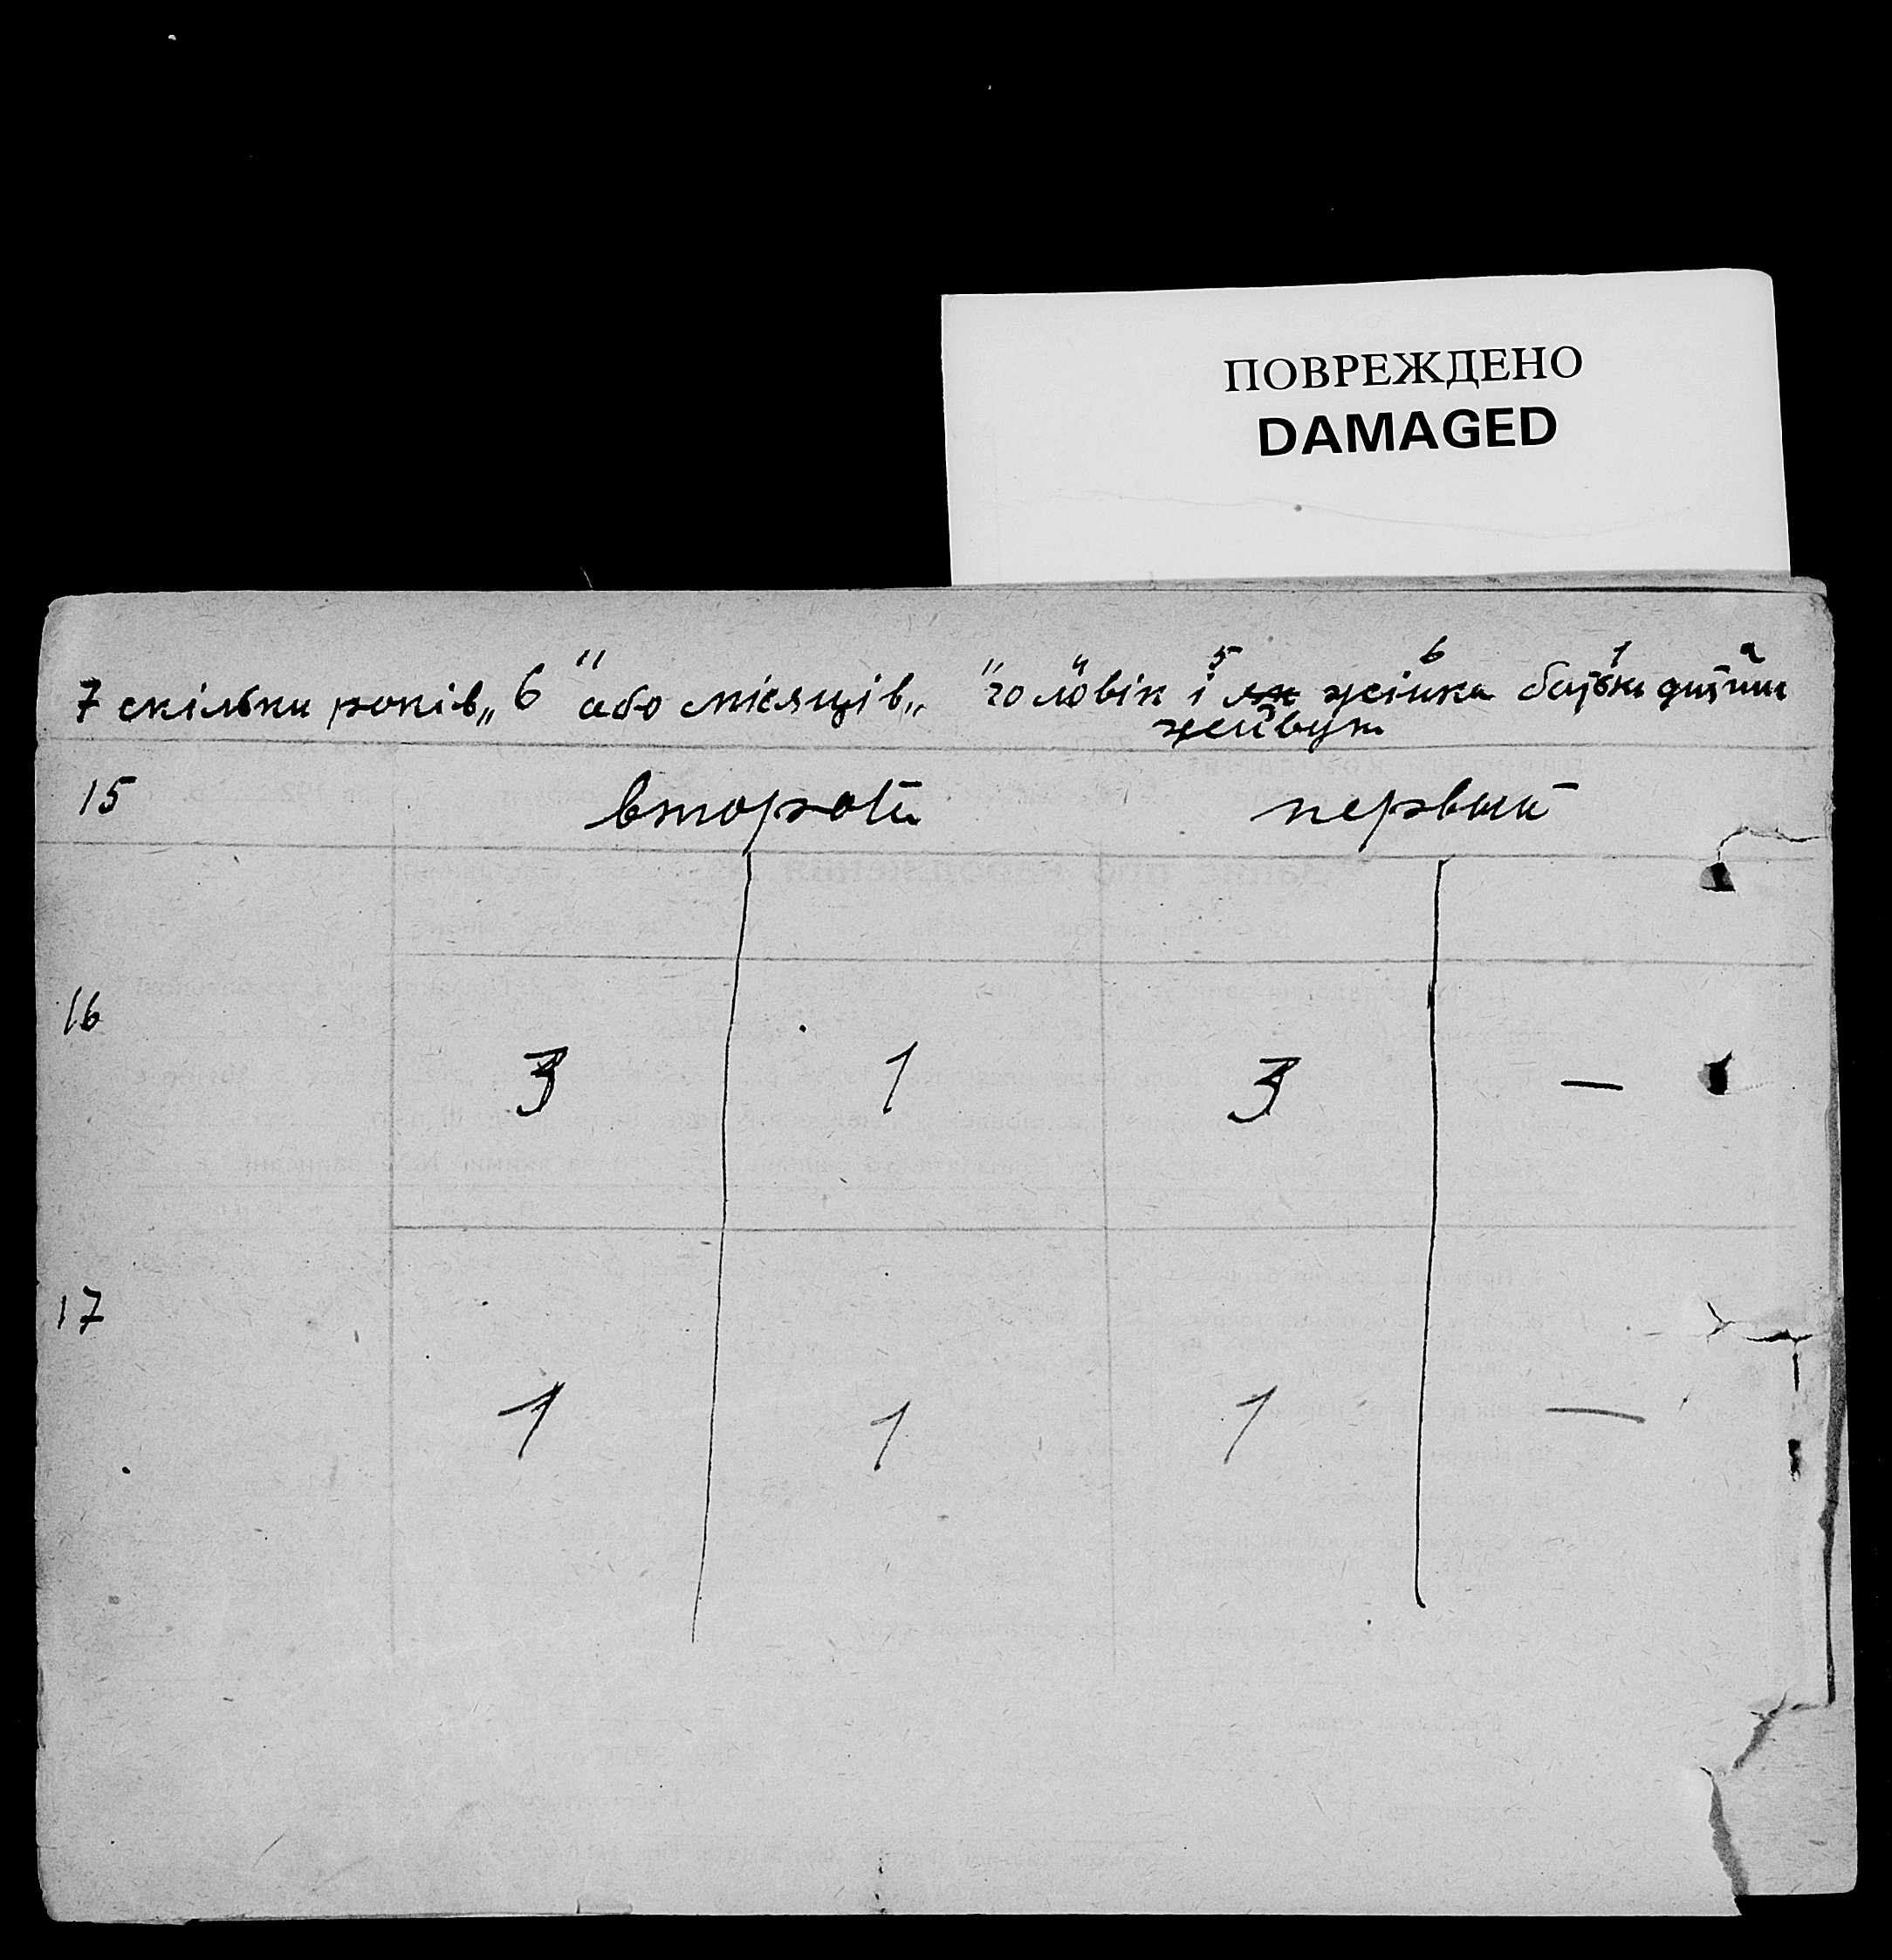 ПОВРЕЖДЕНО
DAMAGED
" 5 6 1 2
7 скільки років „ 6 або місяців „ " чоловік і як жінка батьки дитини
живут
15 второй первый
16
3 1 3 —
17
1 1 1 —